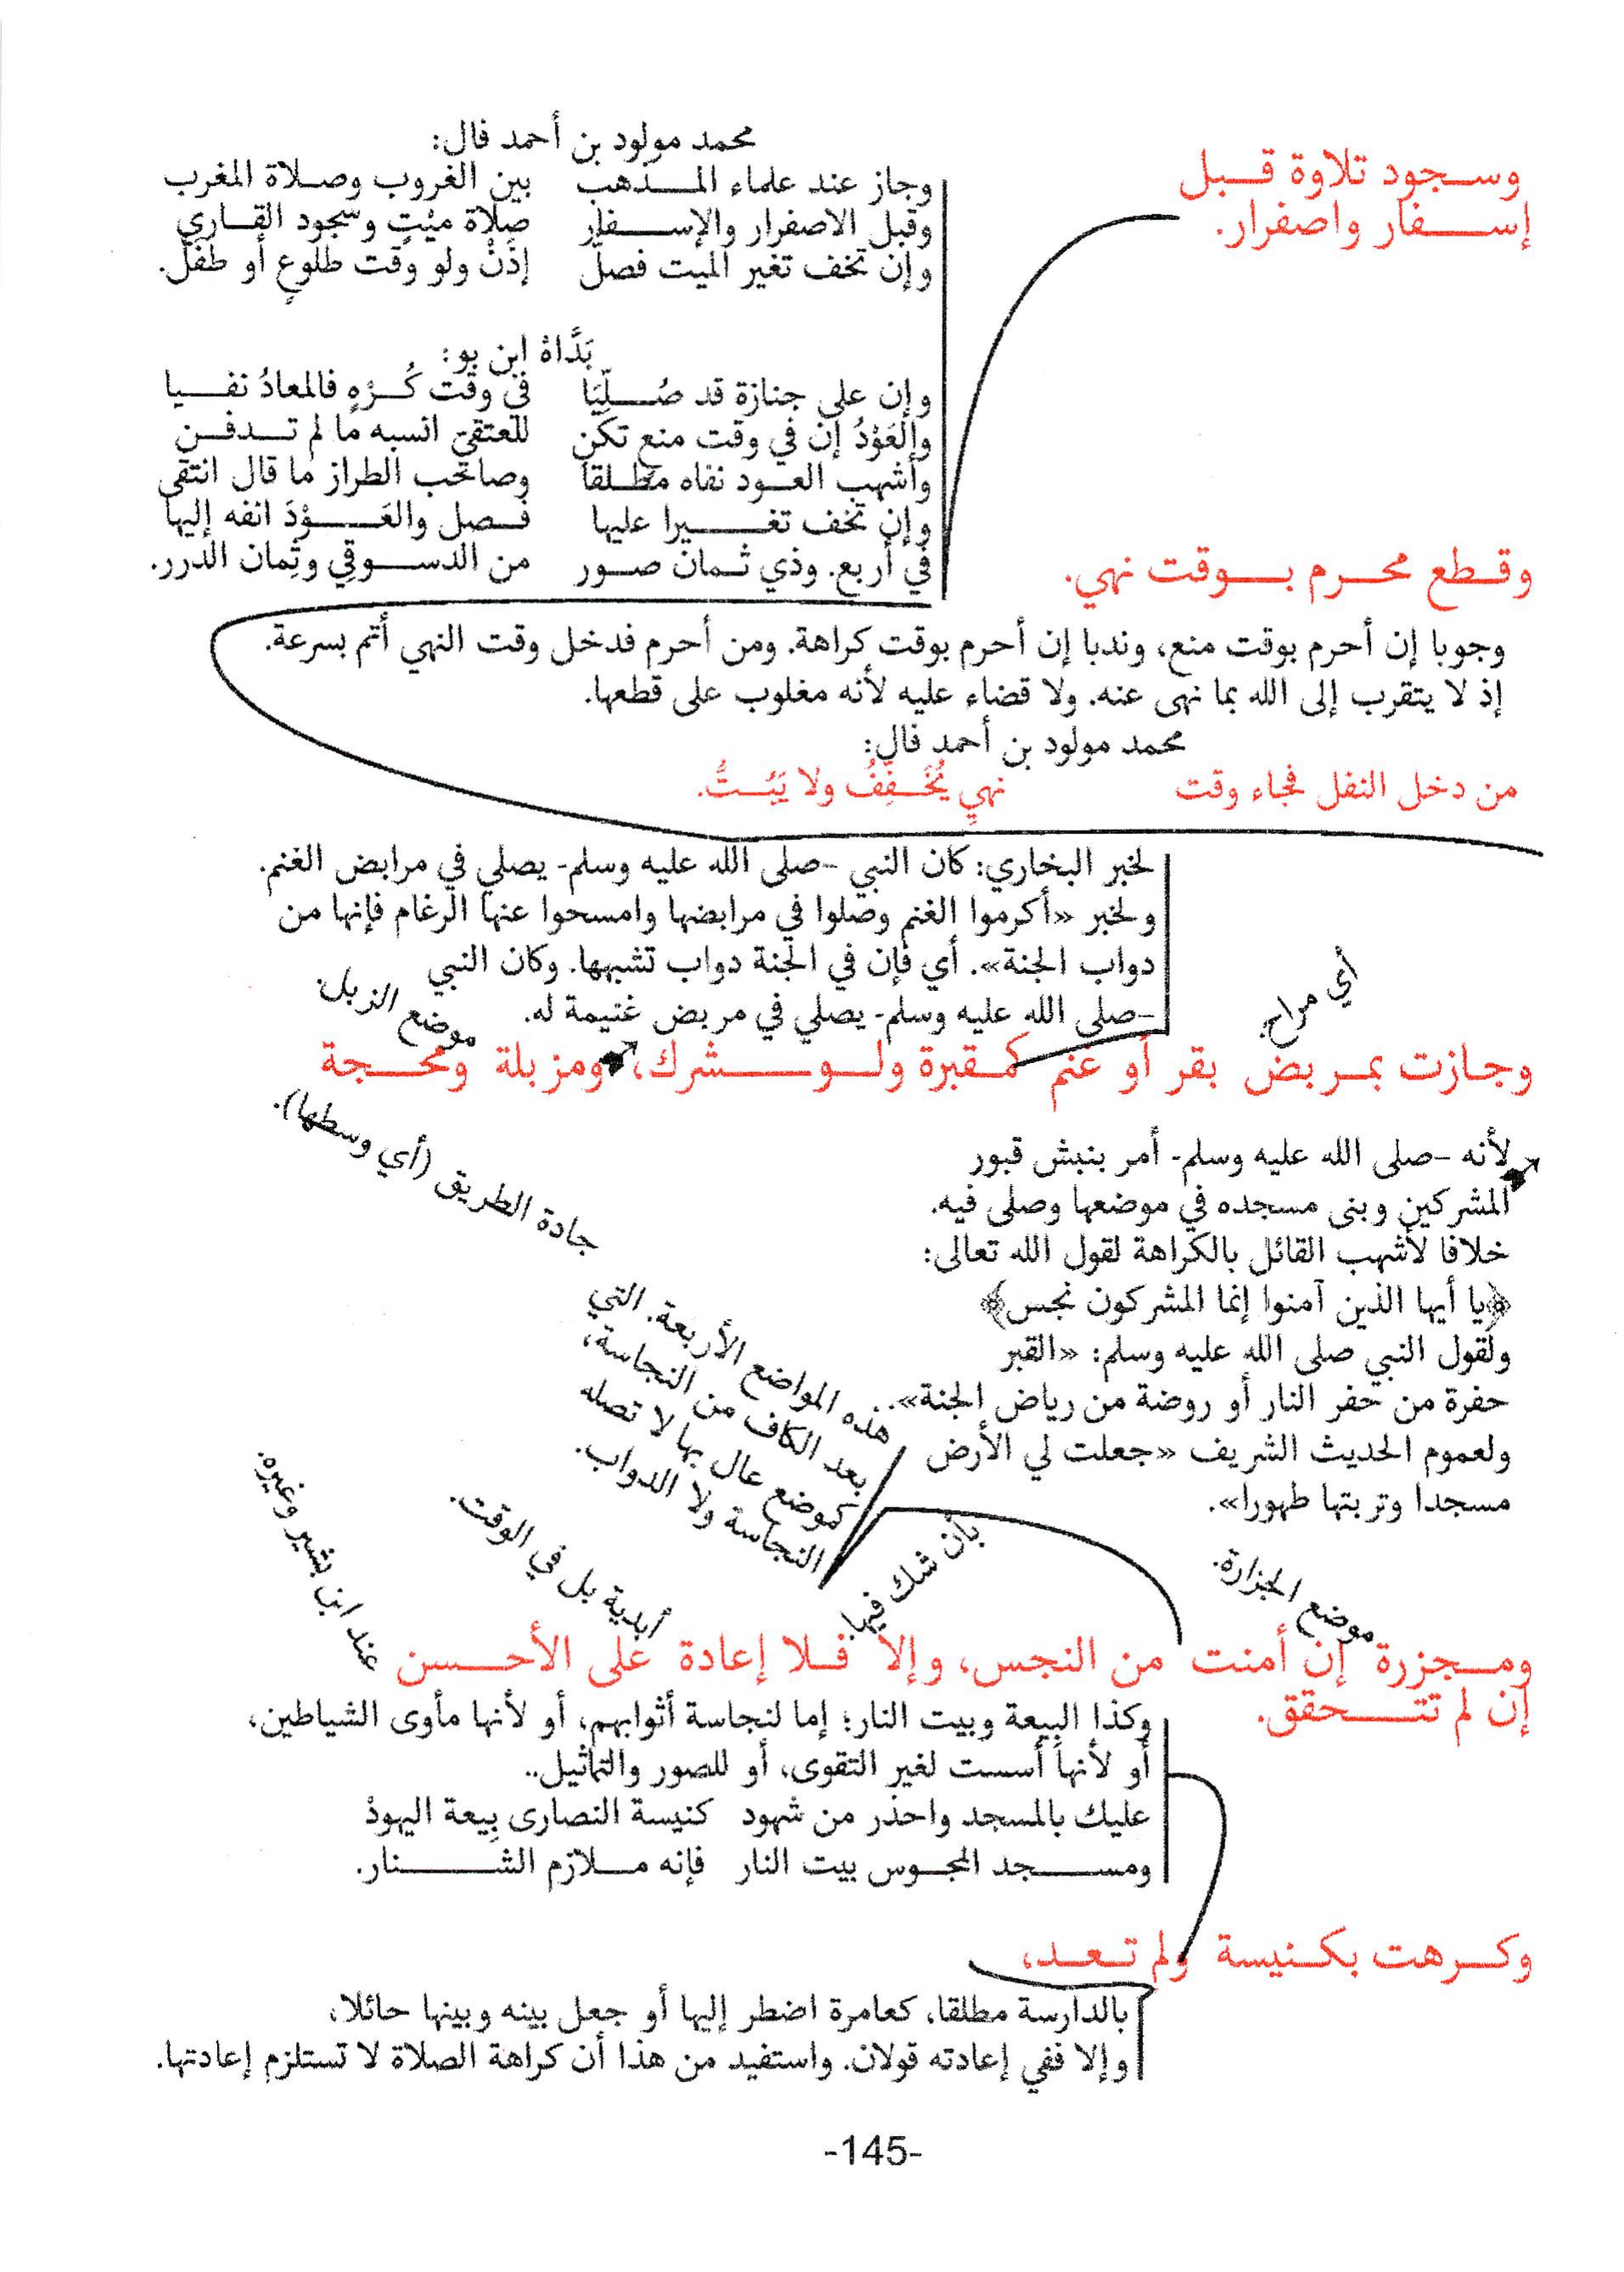 وسجود تلاوة قبل
إسفار واصفرار.
محمد مولود بن أحمد فال:
وجاز عند علماء المذهب بين الغروب وصلاة المغرب
وقبل الاصفرار والإسفار صلاة ميْتٍ وسجود القاري
وإن تخف تغير الميت فصلّ إذَنْ ولو وقت طلوعٍ أو طفَلْ.
بَدَّاهْ ابن بو:
وإن على جنازة قد صُلِّيَا في وقت كُرْهٍ فالمعادُ نفيا
والعَوْدُ إن في وقت منع تكن للعتقيّ انسبه ما لم تدفن
وأشهب العود نفاه مطلقا وصاحب الطراز ما قال انتقى
وإن تخف تغيرا عليها فصل والعَوْدَ انفه إليها
في أربع. وذي ثمان صور من الدسوقي وثِمان الدرر.
وقطع محرم بوقت نهي.
وجوبا إن أحرم بوقت منع، وندبا إن أحرم بوقت كراهة. ومن أحرم فدخل وقت النهي أتم بسرعة.
إذ لا يتقرب إلى الله بما نهى عنه. ولا قضاء عليه لأنه مغلوب على قطعها.
محمد مولود بن أحمد فال:
من دخل النفل فجاء وقت نهيٍ يُخَفِّفُ ولا يَبُتُّ.
لخبر البخاري: كان النبي -صلى الله عليه وسلم- يصلي في مرابض الغنم.
ولخبر «أكرموا الغنم وصلوا في مرابضها وامسحوا عنها الرغام فإنها من
دواب الجنة». أي فإن في الجنة دواب تشبهها. وكان النبي
-صلى الله عليه وسلم- يصلي في مربض غنيمة له.
أي مراح.
موضع الزبل.
وجازت بمربض بقر أو غنم كمقبرة ولو لمشرك، ومزبلة ومحجة
جادة الطريق (أي وسطها).
لأنه -صلى الله عليه وسلم- أمر بنبش قبور
المشركين وبنى مسجده في موضعها وصلى فيه.
خلافا لأشهب القائل بالكراهة لقول الله تعالى:
﴿يا أيها الذين آمنوا إنما المشركون نجس﴾
ولقول النبي صلى الله عليه وسلم: «القبر
حفرة من حفر النار أو روضة من رياض الجنة»..
ولعموم الحديث الشريف «جعلت لي الأرض
مسجدا وتربتها طهورا».
هذه المواضع الأربعة. التي
بعد الكاف من النجاسة،
كموضع عال بها لا تصله
النجاسة ولا الدواب.
موضع الجزارة.
بأن شك فيها.
أبدية بل في الوقت.
عند ابن بشير وغيره.
ومجزرة إن أمنت من النجس، وإلا فلا إعادة على الأحسن
إن لم تتحقق.
وكذا البِيعة وبيت النار؛ إما لنجاسة أثوابهم، أو لأنها مأوى الشياطين،
أو لأنها أسست لغير التقوى، أو للصور والتماثيل..
عليك بالمسجد واحذر من شهود كنيسة النصارى بِيعة اليهودْ
ومسجد المجوس بيت النار فإنه ملازم الشنار.
وكرهت بكنيسة ولم تعد،
بالدارسة مطلقا، كعامرة اضطر إليها أو جعل بينه وبينها حائلا،
وإلا ففي إعادته قولان. واستفيد من هذا أن كراهة الصلاة لا تستلزم إعادتها.
-145-